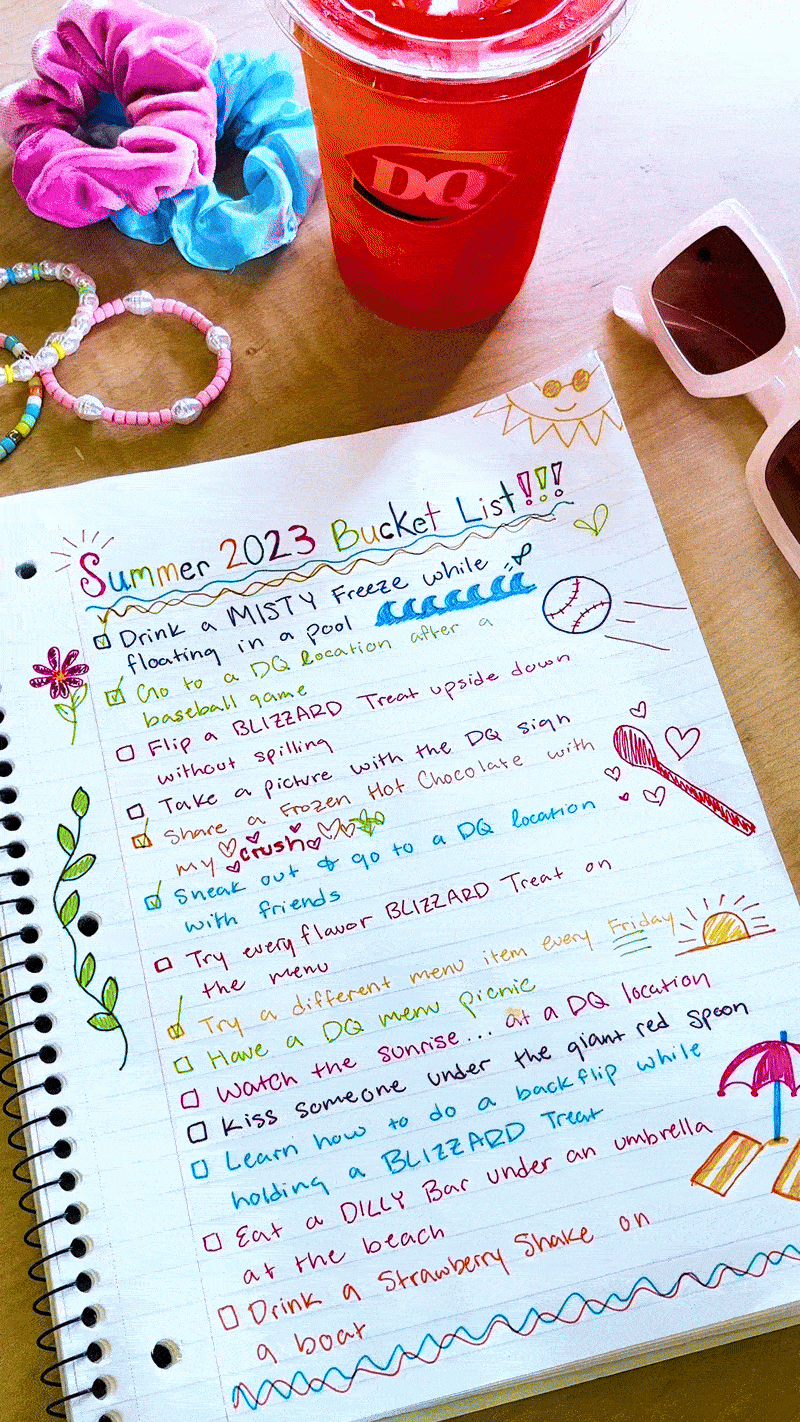 DQ
Summer 2023 Bucket List!!!
Drink a MISTY Freeze while
floating in a pool
Go to a DQ location after a
baseball game
Flip a BLIZZARD Treat upside down
without spilling
Take a picture with the DQ sign
Share a Frozen Hot Chocolate with
my crush
Sneak out & go to a DQ location
with friends
Try every flavor BLIZZARD Treat on
the menu
Try a different menu item every Friday
Have a DQ menu picnic
Watch the sunrise... at a DQ location
Kiss someone under the giant red spoon
Learn how to do a backflip while
holding a BLIZZARD Treat
Eat a DILLY Bar under an umbrella
at the beach
Drink a Strawberry Shake on
a boat